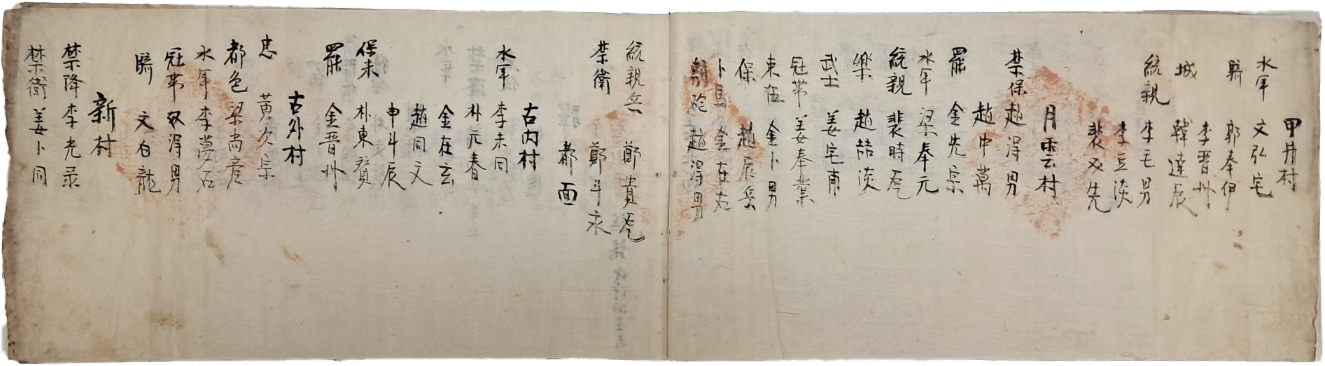 甲井村
水軍 文弘宅
騎 郭奉伊
李晋州
城 韓達辰
統親 李毛男
李豆淡
裵双先
月雲村
禁保 趙得男
趙中萬
罷 金先宗
水軍 梁奉元
統親 裵時虎
樂 趙喆淡
武士 姜宅甫
冠帶 姜奉業
束伍 金卜男
保 趙辰岳
卜馬 金在右
別砲 趙得男
統親兵 鄭貴虎
禁衛 鄭斗永
都面
古内村
水軍 李未同
朴元春
金在玄
趙同文
申斗辰
保未 朴東賛
罷 金晋州
古外村
忠 黃次宗
都色 梁尚彦
水軍 李夢石
冠帶 奴得男
騎 文白龍
新村
禁降 李光彔
禁衛 姜卜同